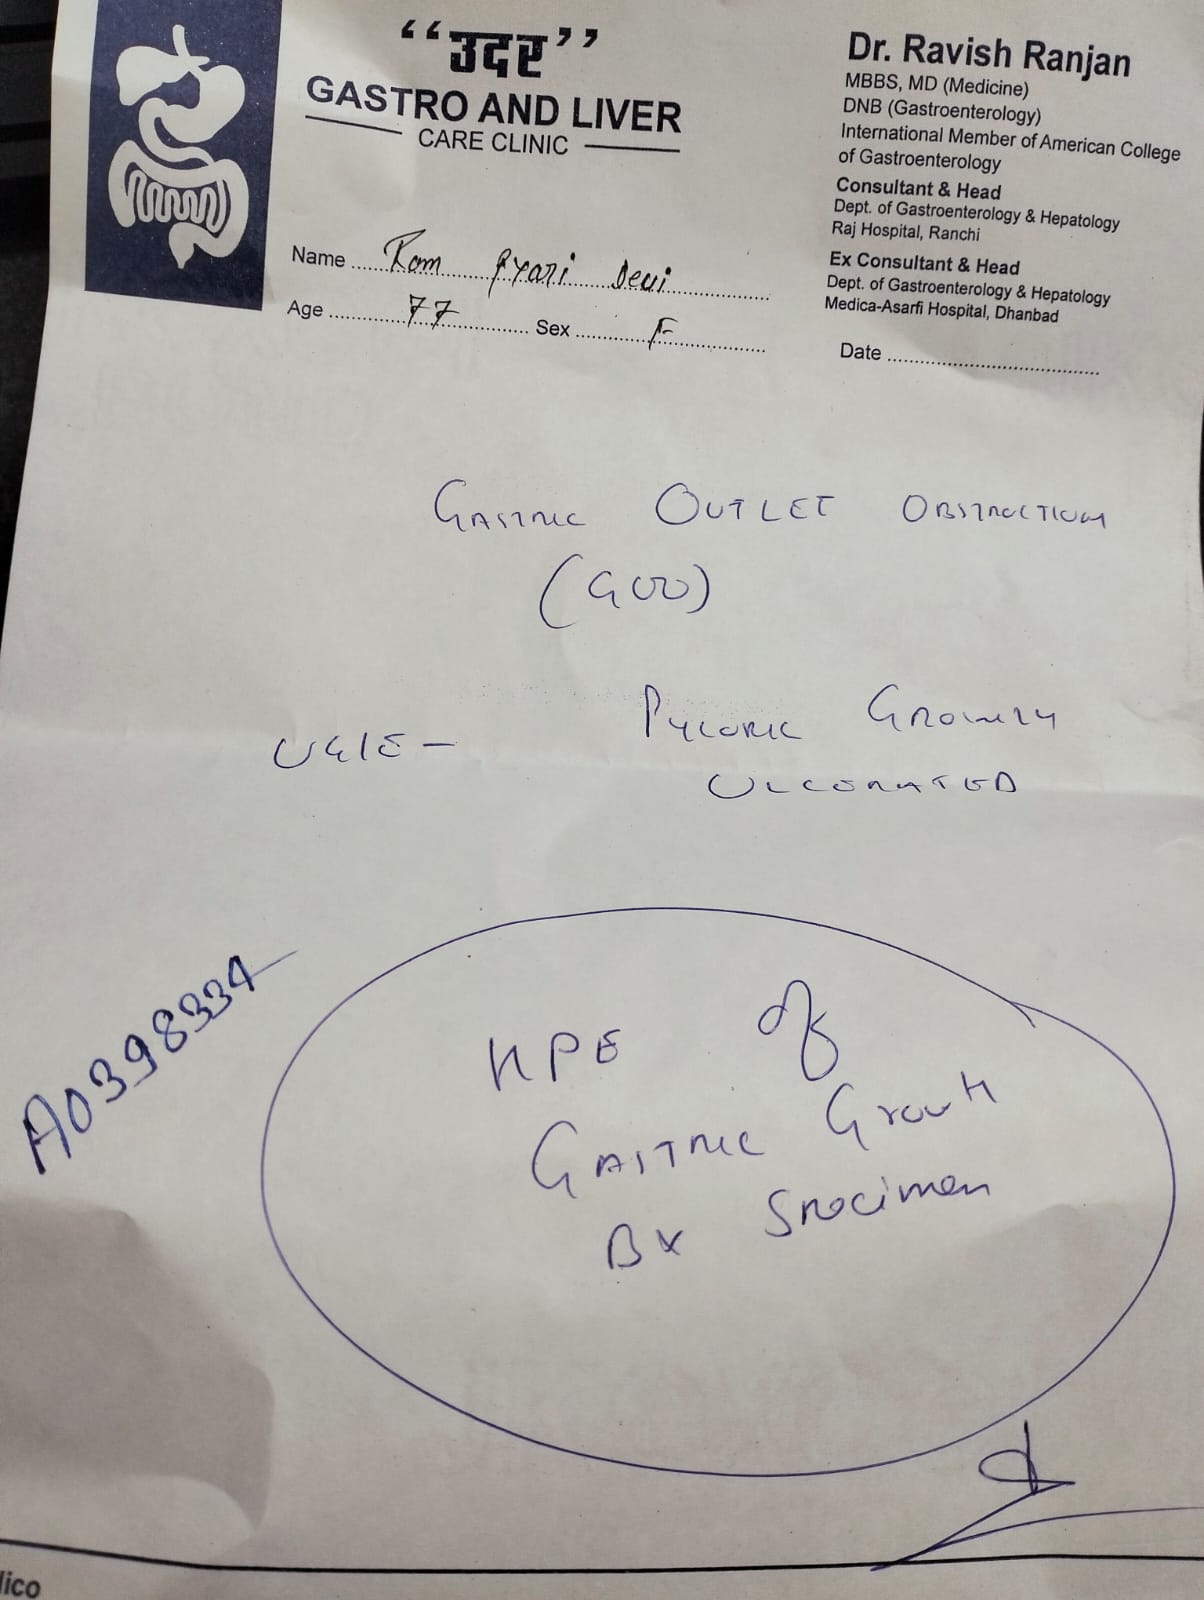 “उदर”
GASTRO AND LIVER
CARE CLINIC
Dr. Ravish Ranjan
MBBS, MD (Medicine)
DNB (Gastroenterology)
International Member of American College
of Gastroenterology
Consultant & Head
Dept. of Gastroenterology & Hepatology
Raj Hospital, Ranchi
Ex Consultant & Head
Dept. of Gastroenterology & Hepatology
Medica-Asarfi Hospital, Dhanbad
Name Ram Pyari Devi
Age 77 Sex F
Date
GASTRIC OUTLET OBSTRUCTION
(GOO)
UGIE - PYLORIC GROWTH
ULCERATED
A0398334
HPE of
GASTRIC Growth
BX Specimen
lico